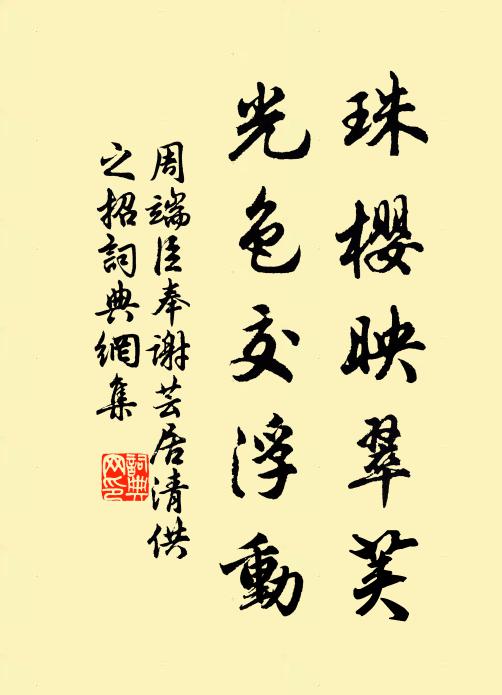 珠櫻映翠芙
光色交浮動
周端臣奉謝芸居清供
之招詞典網集
詞典網印